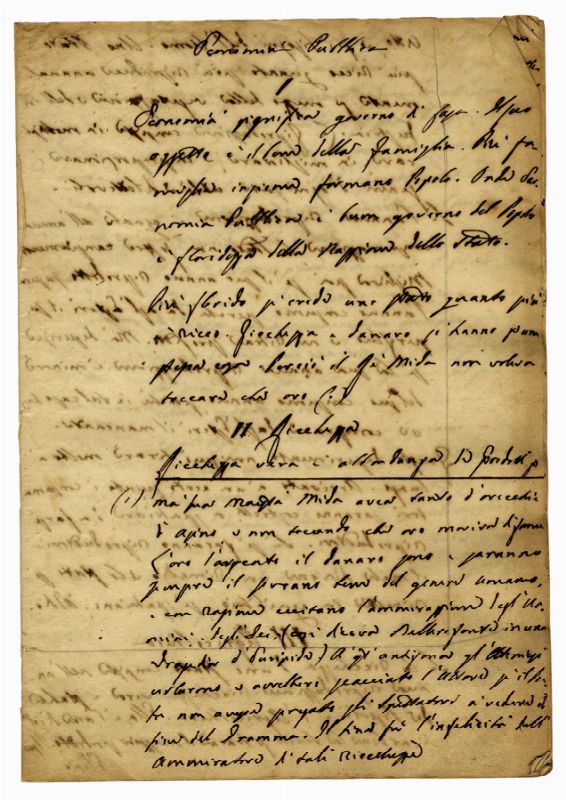 Economia Pubblica
I
Economia significa governo di casa. Il suo
oggetto è il bene della famiglia. Più fa-
miglie insieme formano Popolo. Onde Eco-
nomia Pubblica è buon governo del Popolo
e floridezza della Nazione dello Stato.
Più florido si crede uno Stato quanto più
è ricco. Ricchezza e danaro si hanno p una
stessa cosa. Perciò il Rè Mida non voleva
toccare che oro (1)
II Ricchezza
Ricchezza vera è abbondanza di Prodotti p
(1) ma sua Maestà Mida avea tanto d'orecchi
d'Asino, e non toccando che oro moriva di fame
L'oro l'argento il danaro sono e saranno
sempre il sovrano bene del genere umano,
e con ragione eccitano l'ammirazione degl'Uo-
mini, degli Dei (così diceva Bellerofonte in una
Tragedia d'Euripide) A gli Ateniesi
e avrebbero scacciato l'Attore s'il
non avesse pregato gli spettatori a vedere il
fine del Dramma. Il fine fù l'infelicità dell'
Ammiratore di tali Ricchezze